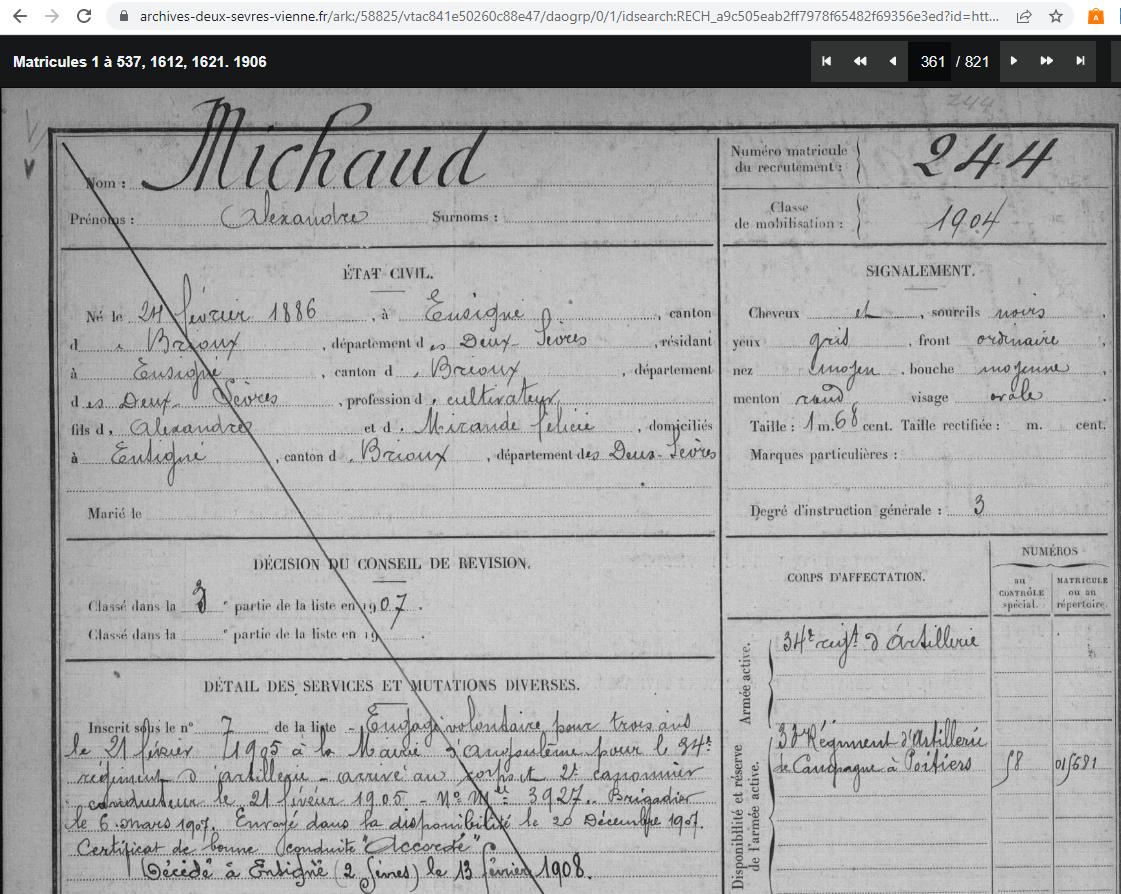 archives-deux-sevres-vienne.fr/ark:/58825/vtac841e50260c88e47/daogrp/0/1/idsearch:RECH_a9c505eab2ff7978f65482f69356e3ed?id=htt...
Matricules 1 à 537, 1612, 1621. 1906
361 / 821
244
Nom : Michaud
Prénoms : Alexandre Surnoms :
Numéro matricule du recrutement : 244
Classe de mobilisation : 1904
ÉTAT CIVIL.
Né le 24 février 1886, à Ensigné, canton
d e Brioux, département des Deux-Sèvres, résidant
à Ensigné, canton d e Brioux, département
des Deux-Sèvres, profession d e cultivateur,
fils d' Alexandre et d e Mirande Félicie, domiciliés
à Ensigné, canton d e Brioux, département des Deux-Sèvres
Marié le
SIGNALEMENT.
Cheveux et, sourcils noirs,
yeux gris, front ordinaire,
nez moyen, bouche moyenne,
menton rond visage ovale
Taille : 1 m. 68 cent. Taille rectifiée : m. cent.
Marques particulières :
Degré d'instruction générale : 3
DÉCISION DU CONSEIL DE REVISION.
Classé dans la 3 e partie de la liste en 1907.
Classé dans la e partie de la liste en 19 .
DÉTAIL DES SERVICES ET MUTATIONS DIVERSES.
Inscrit sous le n° 7 de la liste - Engagé volontaire pour trois ans
le 21 février 1905 à la Mairie d'Angoulême pour le 34e
régiment d'artillerie - arrivé au corps et 2e canonnier
conducteur le 21 février 1905 - No Mle 3927. Brigadier
le 6 mars 1907. Envoyé dans la disponibilité le 20 Décembre 1907.
Certificat de bonne conduite "Accordé"
Décédé à Ensigné (2 Sèvres) le 13 février 1908.
CORPS D'AFFECTATION.
NUMÉROS
au CONTRÔLE spécial.
MATRICULE ou au répertoire.
Armée active.
34e régt d'Artillerie
Disponibilité et réserve de l'armée active.
33 Régiment d'Artillerie
de Campagne à Poitiers 58 01581